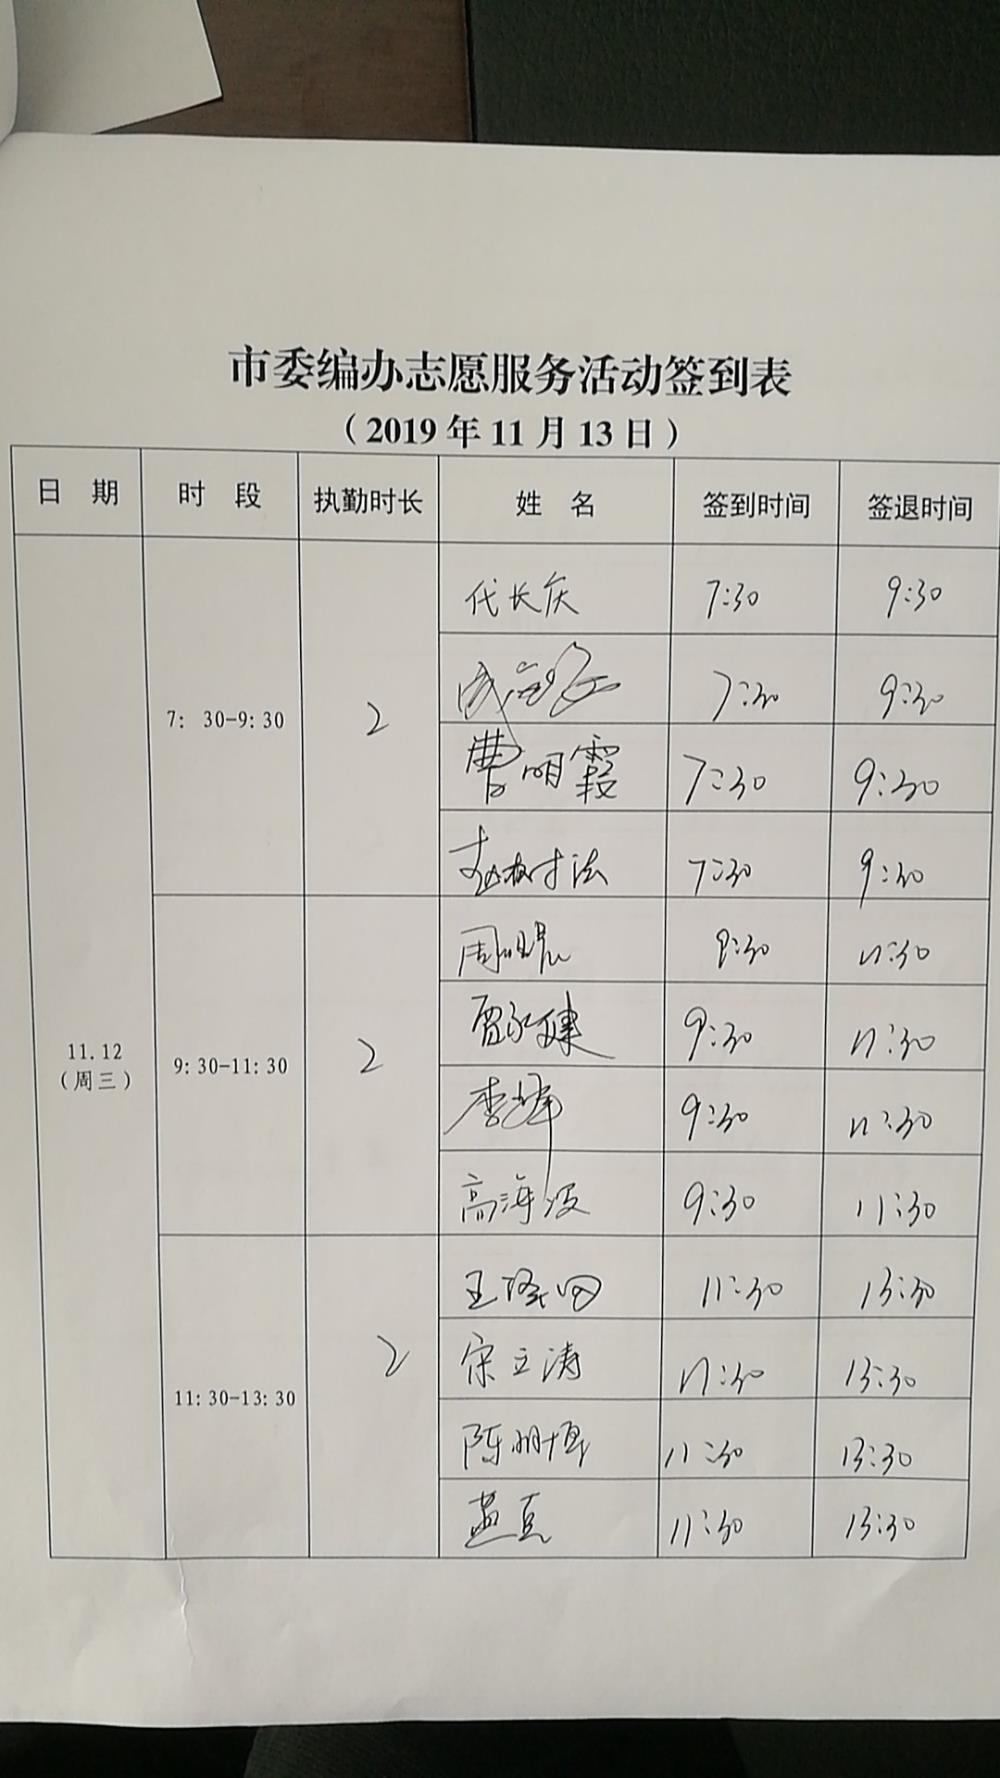 市委编办志愿服务活动签到表
（2019年11月13日）
日 期 时 段 执勤时长 姓 名 签到时间 签退时间
11.12
（周三）
7: 30-9:30 2
代长庆 7:30 9:30
7:30 9:30
曹明霞 7:30 9:30
7:30 9:30
9:30-11:30 2
周明晨 9:30 11:30
贾永健 9:30 11:30
李峰 9:30 11:30
高海波 9:30 11:30
11:30-13:30 2
王 11:30 13:30
宋立涛 11:30 13:30
陈明 11:30 13:30
11:30 13:30